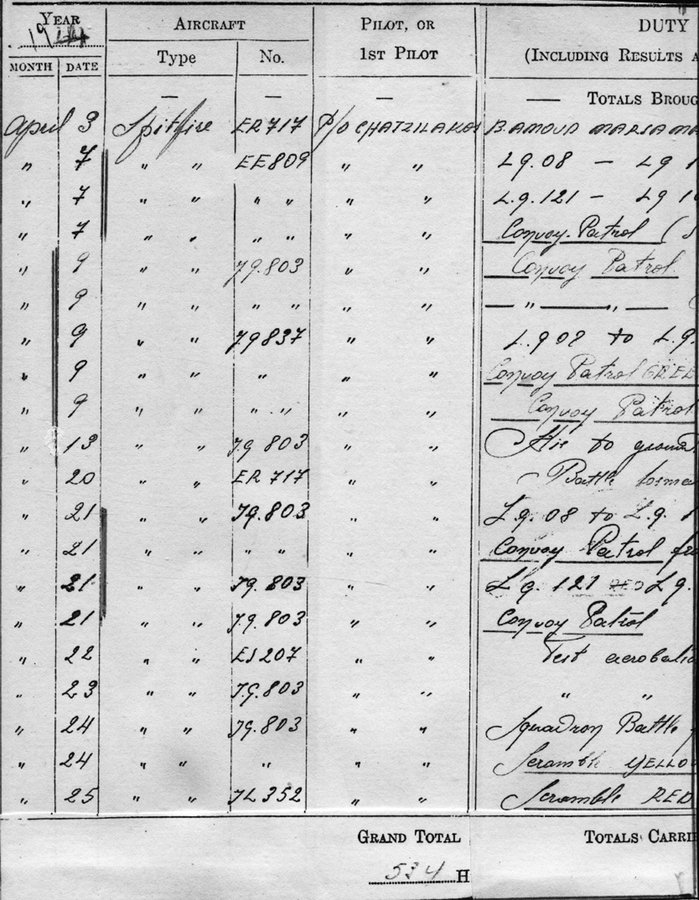 YEAR AIRCRAFT PILOT, OR DUTY
1944 1ST PILOT (INCLUDING RESULTS A
MONTH DATE Type No.
— — — — TOTALS BROUG
April 3 Spitfire ER717 P/O CHATZILAKOS
" 7 " " EE809 " " L.g.08 — L g 1
" 7 " " " " " " L.g.121 — L g 1
" 7 " " " " " " Convoy Patrol (
" 9 " " J.g.803 " " Convoy Patrol
" 9 " " " " " " — " — " — (
" 9 " " J.g837 " " L.g 09 to L.g.
" 9 " " " " " Convoy Patrol
" 9 " " " " " " Convoy Patrol
" 13 " " J.g 803 " " Air to ground
" 20 " " ER 717 " " Battle forma
" 21 " " Jg.803 " " L.g. 08 to L.g. 1
" 21 " " " " " " Convoy Patrol fr
" 21 " " Jg 803 " " L g. 121 L g.
" 21 " " J.g.803 " " Convoy Patrol
" 22 " " ES207 " " Test aerobatic
" 23 " " J.g.803 " " " "
" 24 " " Jg.803 " " Squadron Battle
" 24 " " " " " Scramble YELLO
" 25 " " JL352 " " Scramble RED
GRAND TOTAL TOTALS CARRIE
534 H